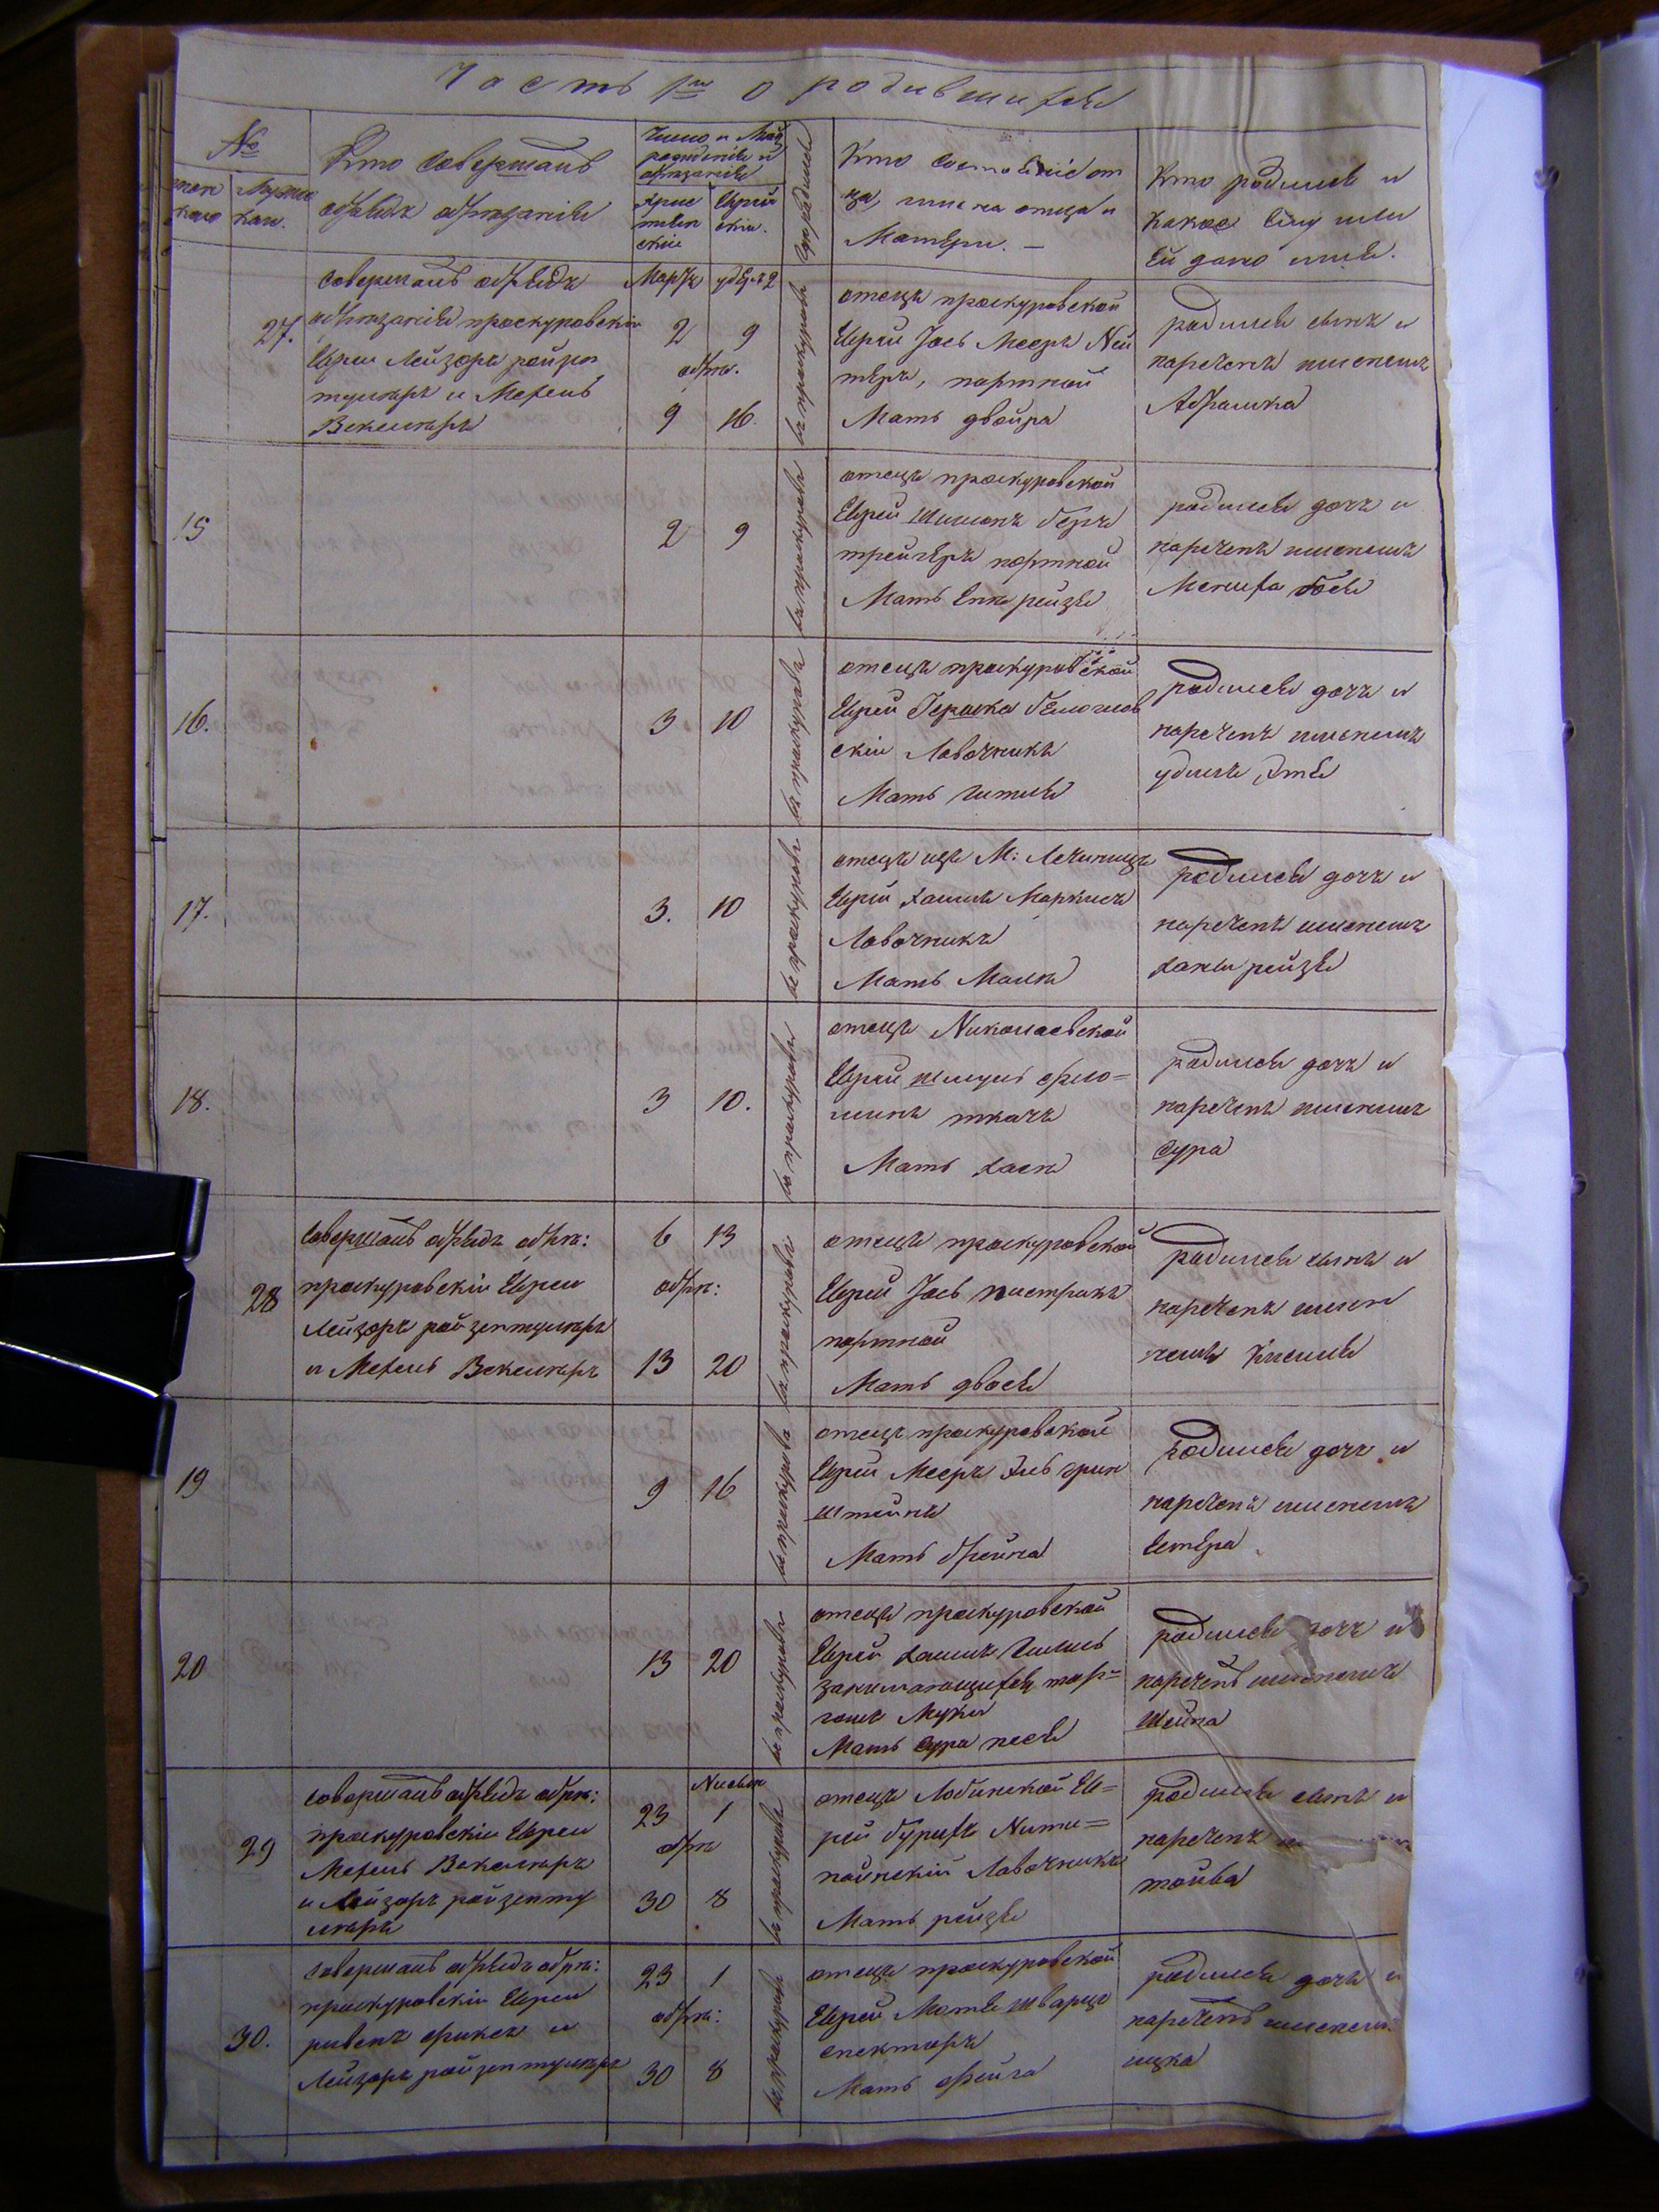 Часть 1я о родившихся
№
женс
каго
Мужес
каи.
Кто совершалъ
обрядъ обрѣзанія
Число и Мѣсяцъ
рожденія и
обрѣзанія
Хрис
тіян
скіе
Еврей
скіи.
Где родился
Кто состояніе от
ца, имена отца и
Матери. —
Кто родился и
какое ему или
ей дано имя.
27.
совершалъ обрядъ
обрѣзанія проскуровскіи
Евреи Лейзоръ ройзен
тулеръ и Мехель
Векслеръ
Марта
2 9
обрѣз.
9 16.
въ проскурове
отецъ проскуровской
Еврей Іось Мееръ
портной
Мать двойра
родился сынъ и
нареченъ именемъ
Абрамка
15
2 9
въ проскурове
отецъ проскуровской
Еврей Шимонъ беръ
трейгеръ портной
Мать Ента рейзя
родилась дочь и
наречена именемъ
Мениха бося
16.
3 10
въ проскурове
отецъ проскуровской
Еврей Гершко
скіи Лавочникъ
Мать Гитля
родилась дочь и
наречена именемъ
удиль Этя
17.
3. 10
въ проскурове
отецъ изъ М:
Еврей Хаимъ
Лавочникъ
Мать Малка
родилась дочь и
наречена именемъ
хания рейзя
18.
3 10.
въ проскурове
отецъ Николаевской
Еврей шмуль
ткачъ
Мать хася
родилась дочь и
наречена именемъ
сура
28
совершалъ обрядъ обрѣз:
проскуровскіи Евреи
Лейзоръ ройзентулеръ
и Мехель Векслеръ
6 13
обрѣз:
13 20
въ проскурове
отецъ проскуровской
Еврей Іось пистрикъ
портной
Мать двося
родился сынъ и
нареченъ имен
немъ
19
9 16
въ проскурове
отецъ проскуровской
Еврей Мееръ Эль грин
штейнъ
Мать брейна
родилась дочь и
наречена именемъ
Естера
20
13 20
въ проскурове
отецъ проскуровской
Еврей хаимъ
занимающихся тор=
гомъ Муки
Мать сура песя
родилась дочь и
наречена именемъ
Шейна
29
совершалъ обрядъ обрѣз:
проскуровскіи Евреи
Мехель Векслеръ
и Лейзоръ ройзенту
леръ
Нисан
23 1
обрѣз
30 8
въ проскурове
отецъ Лодинской Ев=
рей бурихъ
Лавочникъ
Мать рейзя
родился сынъ и
нареченъ
тойва
30.
совершалъ обрядъ обрѣз:
проскуровскіи Евреи
ривенъ фуксъ и
Лейзоръ ройзентулеръ
23 1
обрѣз:
30 8
въ проскурове
отецъ проскуровской
Еврей Мотя шварцъ
спекторъ
Мать фейга
родился дочь и
нареченъ именемъ
ицка